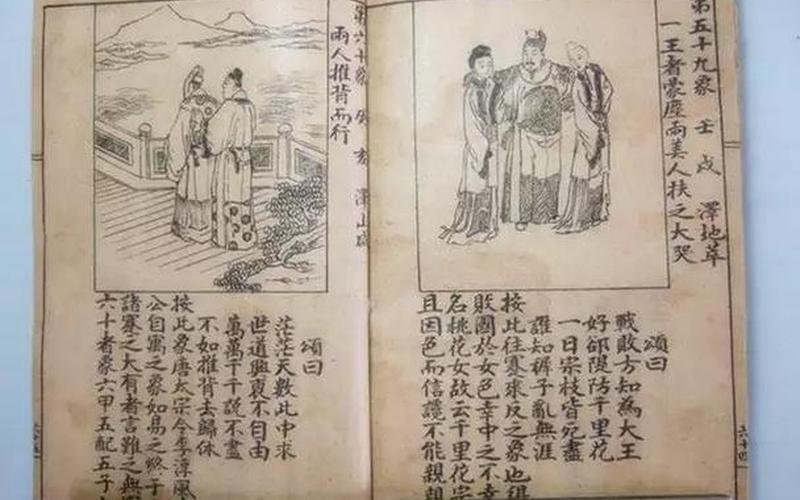 第五十九象 壬戌 澤地萃
一王者蒙塵兩美人扶之大哭
頌曰
戰敗方知為大王
好卻隄防千里花
一日宗枝皆宛盡
誰知裤子亂無涯
按此往蹇來反之象也得
敗國於女色幸中之不幸
名桃花女故云千里花宗
且因色而信讒不能親親
六十四
第六十象 癸亥 澤山咸
兩人推背而行
頌曰
茫茫天數此中求
世道興衰不自由
萬萬千千說不盡
不如推背去歸休
按此象唐太宗令李淳風
公自寓之象如易之終于
諸蹇之大有者言雖之與
六十者象六甲五配五子